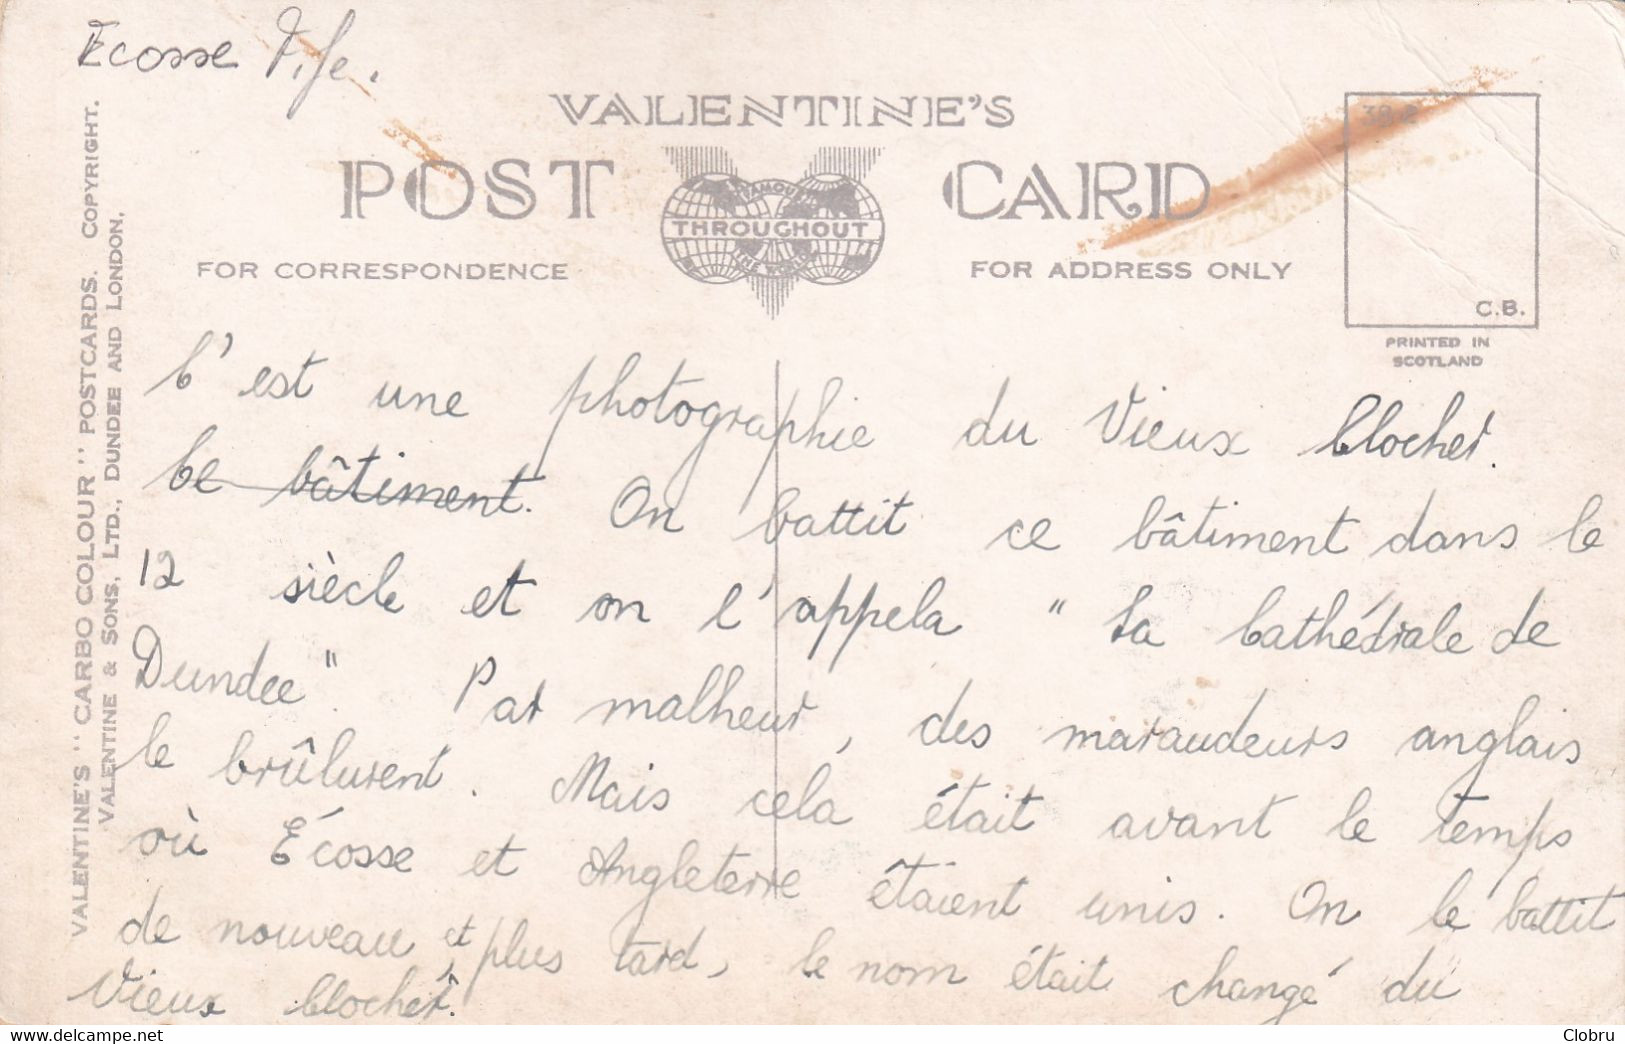 Ecosse Fife.
VALENTINE'S
POST CARD
FAMOUS
THROUGHOUT
THE WORLD
FOR CORRESPONDENCE
FOR ADDRESS ONLY
38-2
C.B.
PRINTED IN
SCOTLAND
VALENTINE'S "CARBO COLOUR" POSTCARDS. COPYRIGHT.
VALENTINE & SONS, LTD., DUNDEE AND LONDON.
C'est une photographie du Vieux Clocher.
Ce bâtiment. On battit ce bâtiment dans le
12 siècle et on l'appela "La Cathédrale de
Dundee". Par malheur, des maraudeurs anglais
le brûlurent. Mais celà était avant le temps
où Écosse et Angleterre étaient unis. On le battit
de nouveau et, plus tard, le nom était changé du
Vieux Clocher.
delcampe.net
Clobru